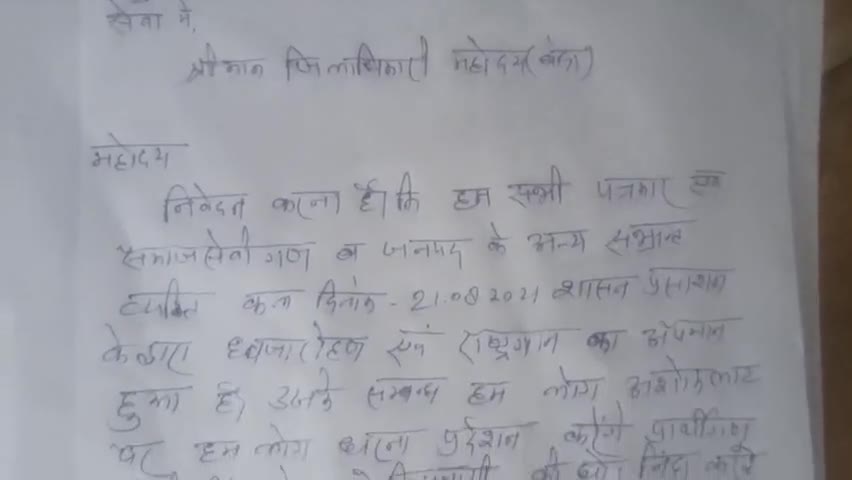 सेवा में,
श्रीमान जिलाधिकारी महोदय (बांदा)
महोदय
निवेदन करना है कि हम सभी पत्रकार एवं
समाजसेवी गण व जनपद के अन्य संभ्रान्त
व्यक्ति कल दिनांक - 21.08.2021 शासन प्रशासन
के द्वारा ध्वजारोहण एवं राष्ट्रगान का अपमान
हुआ है। उसके सम्बन्ध हम लोग अशोक लाट
पर हम लोग धरना प्रदर्शन करेंगे प्रार्थीगण
की घोर निंदा करते